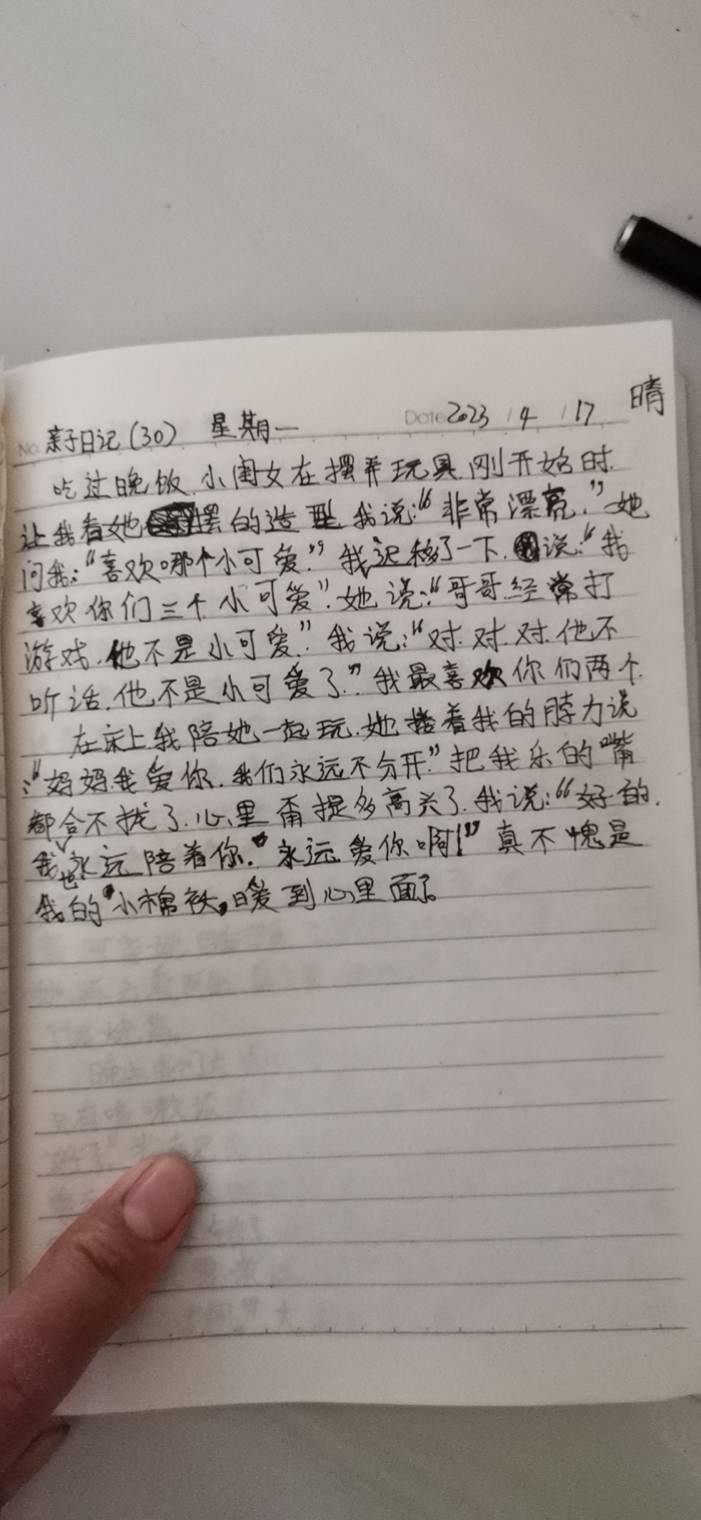 No. 亲子日记(30) 星期一 Date 2023 / 4 / 17 晴
吃过晚饭,小闺女在摆弄玩具,刚开始时
让我看她摆的造型,我说:“非常漂亮.”她
问我:“喜欢哪个小可爱?”我迟移了一下.说:“我
喜欢你们三个小可爱”.她说:“哥哥经常打
游戏.他不是小可爱”.我说:“对.对.对.他不
听话.他不是小可爱了.”我最喜欢你们两个.
在床上我陪她一起玩.她搂着我的脖力说
:“妈妈我爱你.我们永远不分开.”把我乐的嘴
都合不拢了.心里甭提多高兴了.我说:“好的.
我也永远陪着你.永远爱你啊!”真不愧是
我的“小棉袄”,暖到心里面了